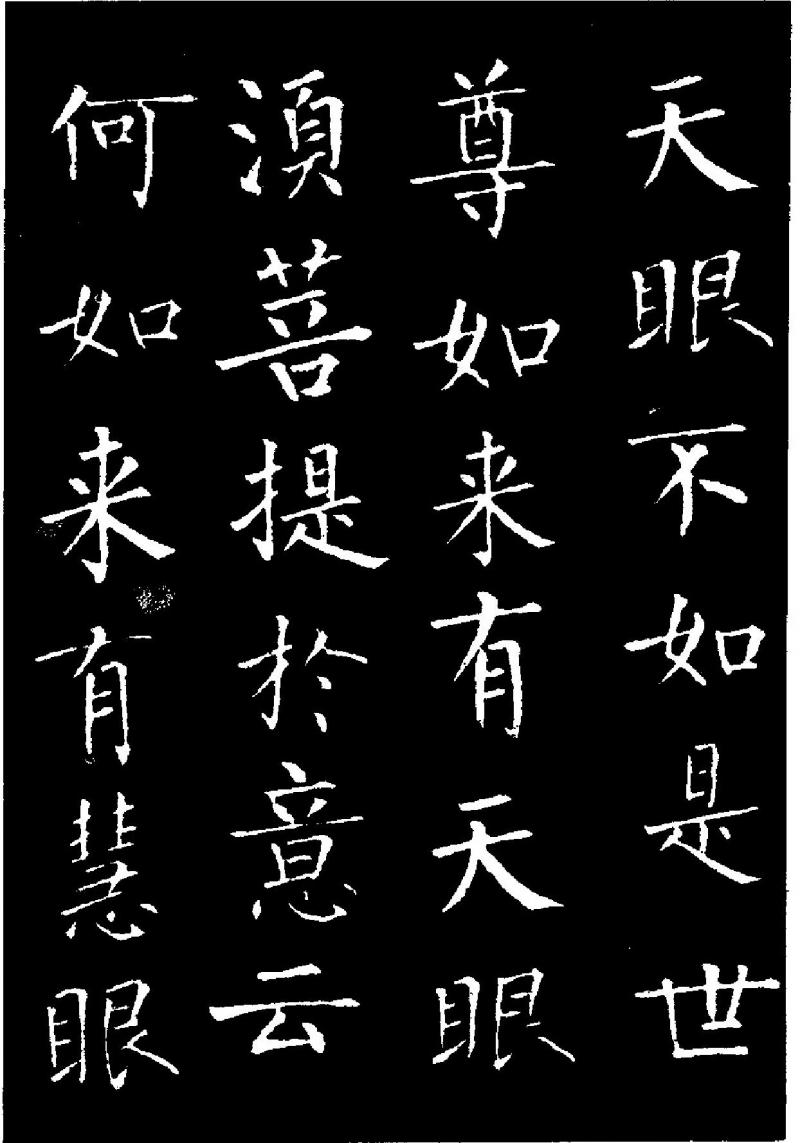 天眼不如是世
尊如来有天眼
湏菩提於意云
何如来有慧眼